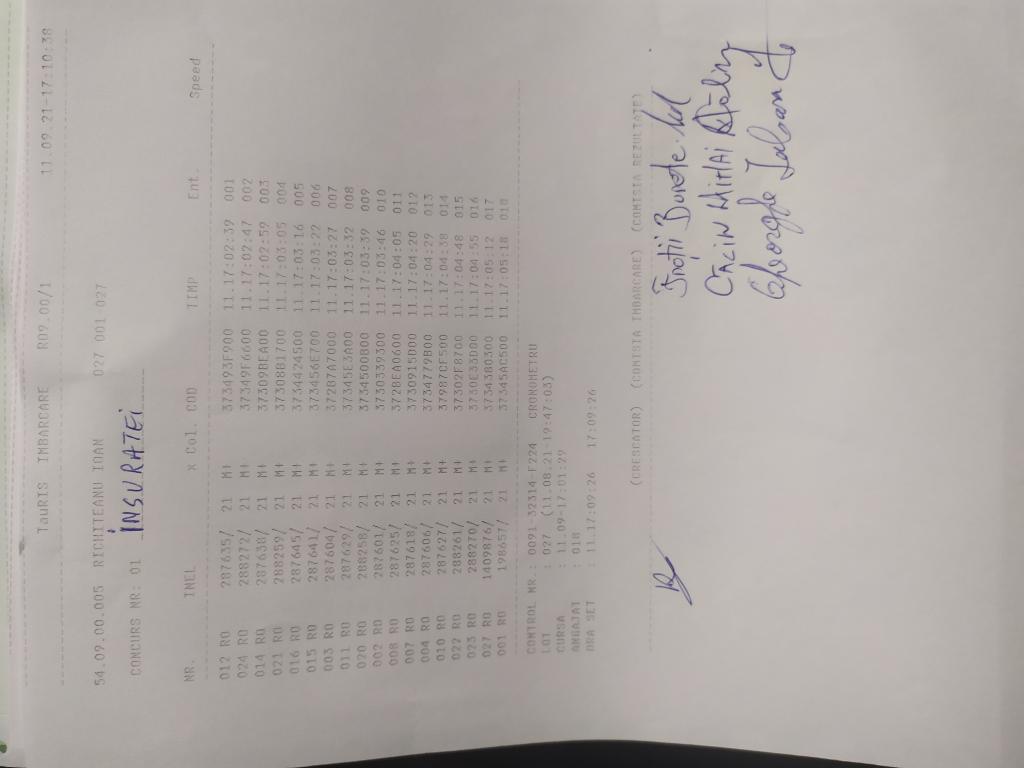 TauRIS IMBARCARE R09.00/1 11.09.21-17:10:38
54.09.00.005 RICHITEANU IOAN 027 001 027
CONCURS NR: 01 INSURATEI
NR. INEL x Col. COD TIMP Ent. Speed
012 RO 287635/ 21 M+ 373493F900 11.17:02:39 001
024 RO 288272/ 21 M+ 37349F6600 11.17:02:47 002
014 RO 287638/ 21 M+ 37309BEA00 11.17:02:59 003
021 RO 288259/ 21 M+ 37308B1700 11.17:03:05 004
016 RO 287645/ 21 M+ 3734424500 11.17:03:16 005
015 RO 287641/ 21 M+ 373456E700 11.17:03:22 006
003 RO 287604/ 21 M+ 37287A7000 11.17:03:27 007
011 RO 287629/ 21 M+ 37345E3A00 11.17:03:32 008
020 RO 288258/ 21 M+ 3734500B00 11.17:03:39 009
002 RO 287601/ 21 M+ 3730339300 11.17:03:46 010
008 RO 287625/ 21 M+ 3728EA0600 11.17:04:05 011
007 RO 287618/ 21 M+ 3730915D00 11.17:04:20 012
004 RO 287606/ 21 M+ 3734779B00 11.17:04:29 013
010 RO 287627/ 21 M+ 37987CF500 11.17:04:38 014
022 RO 288261/ 21 M+ 37302F8700 11.17:04:48 015
023 RO 288270/ 21 M+ 3730E33D00 11.17:04:55 016
027 RO 1409876/ 21 M+ 37343B0300 11.17:05:12 017
001 RO 198657/ 21 M+ 37345AC500 11.17:05:18 018
CONTROL NR.: 0091-32314-F224 CRONOMETRU
LOT : 027 (11.08.21-19:47:03)
CURSA : 11.09-17:01:29
ANGAJAT : 018
ORA SET : 11.17:09:26 17:09:26
(CRESCATOR) (COMISIA IMBARCARE) (COMISIA REZULTATE)
CRCIN MIHAI
Gheorghe